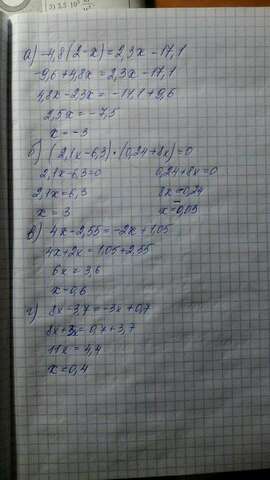 а) -4,8(2-x)=2,3x-17,1
-9,6+4,8x=2,3x-17,1
4,8x-2,3x=-17,1+9,6
2,5x=-7,5
x=-3
б) (2,1x-6,3)·(0,24+8x)=0
2,1x-6,3=0 0,24+8x=0
2,1x=6,3 8x=-0,24
x=3 x=-0,03
в) 4x-2,55=-2x+1,05
4x+2x=1,05+2,55
6x=3,6
x=0,6
г) 8x-3,7=-3x+0,7
8x+3x=0,7+3,7
11x=4,4
x=0,4